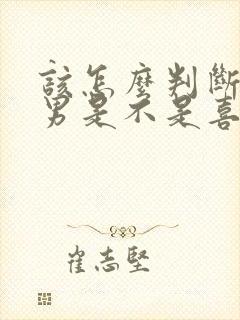 該怎麼判斷
男是不是喜
崔志堅